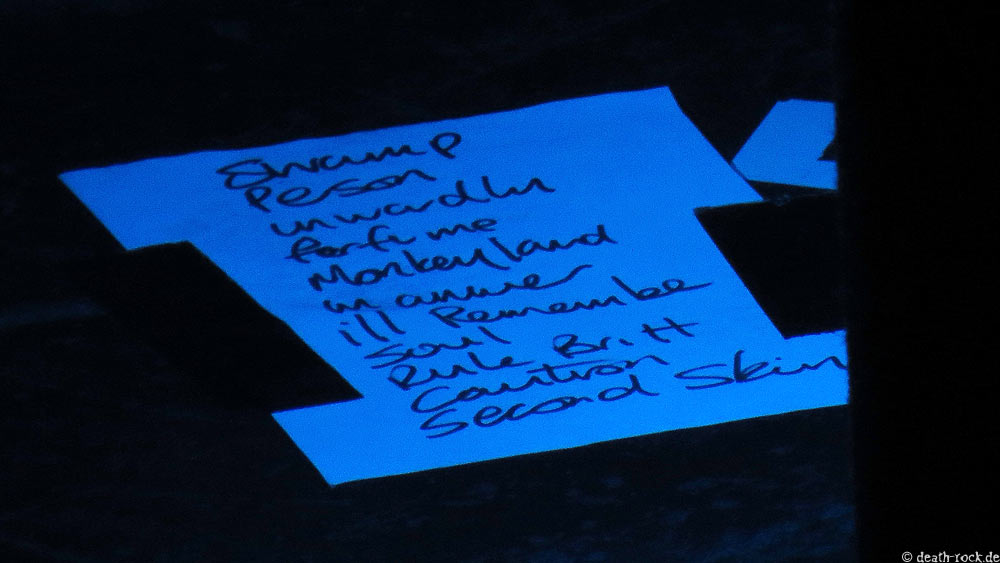 Shrump
Person
inwardly
Perfume
Monkeyland
in anner
ill Remembe
Soul
Rule Britt
Caution
Second Skin
© death-rock.de